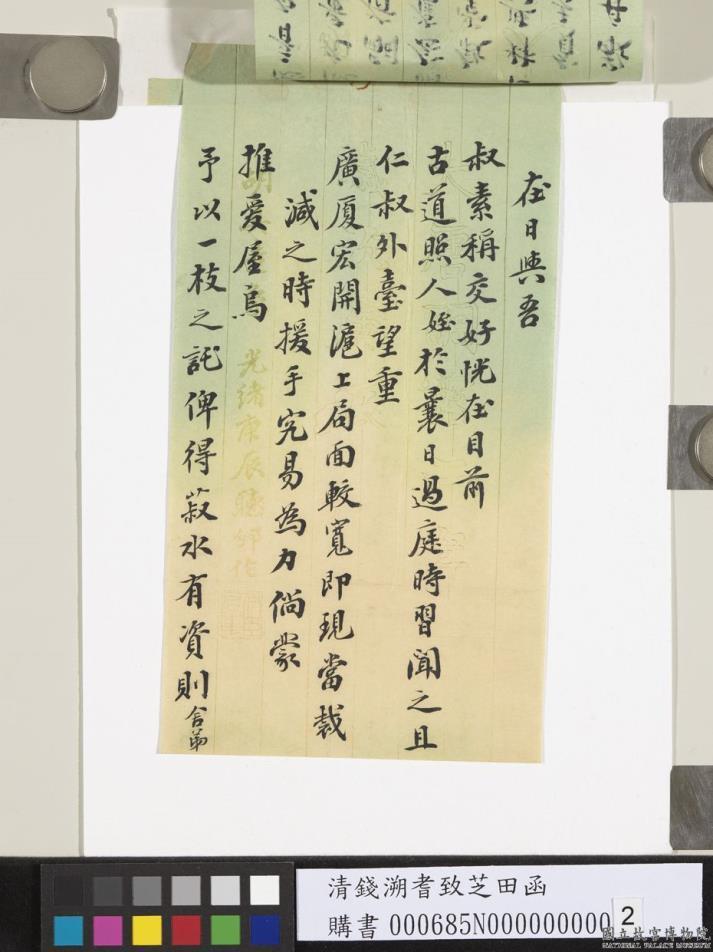 在日與吾
叔素稱交好恍在目前
古道照人姪於曩日過庭時習聞之且
仁叔外臺望重
廣厦宏開滬上局面較寬即現當裁
減之時援手究易為力倘蒙
推愛屋烏
予以一枝之託俾得菽水有資則舍弟
光緒庚辰
清錢溯耆致芝田函
購書 000685N000000000
2
國立故宮博物院
NATIONAL PALACE MUSEUM